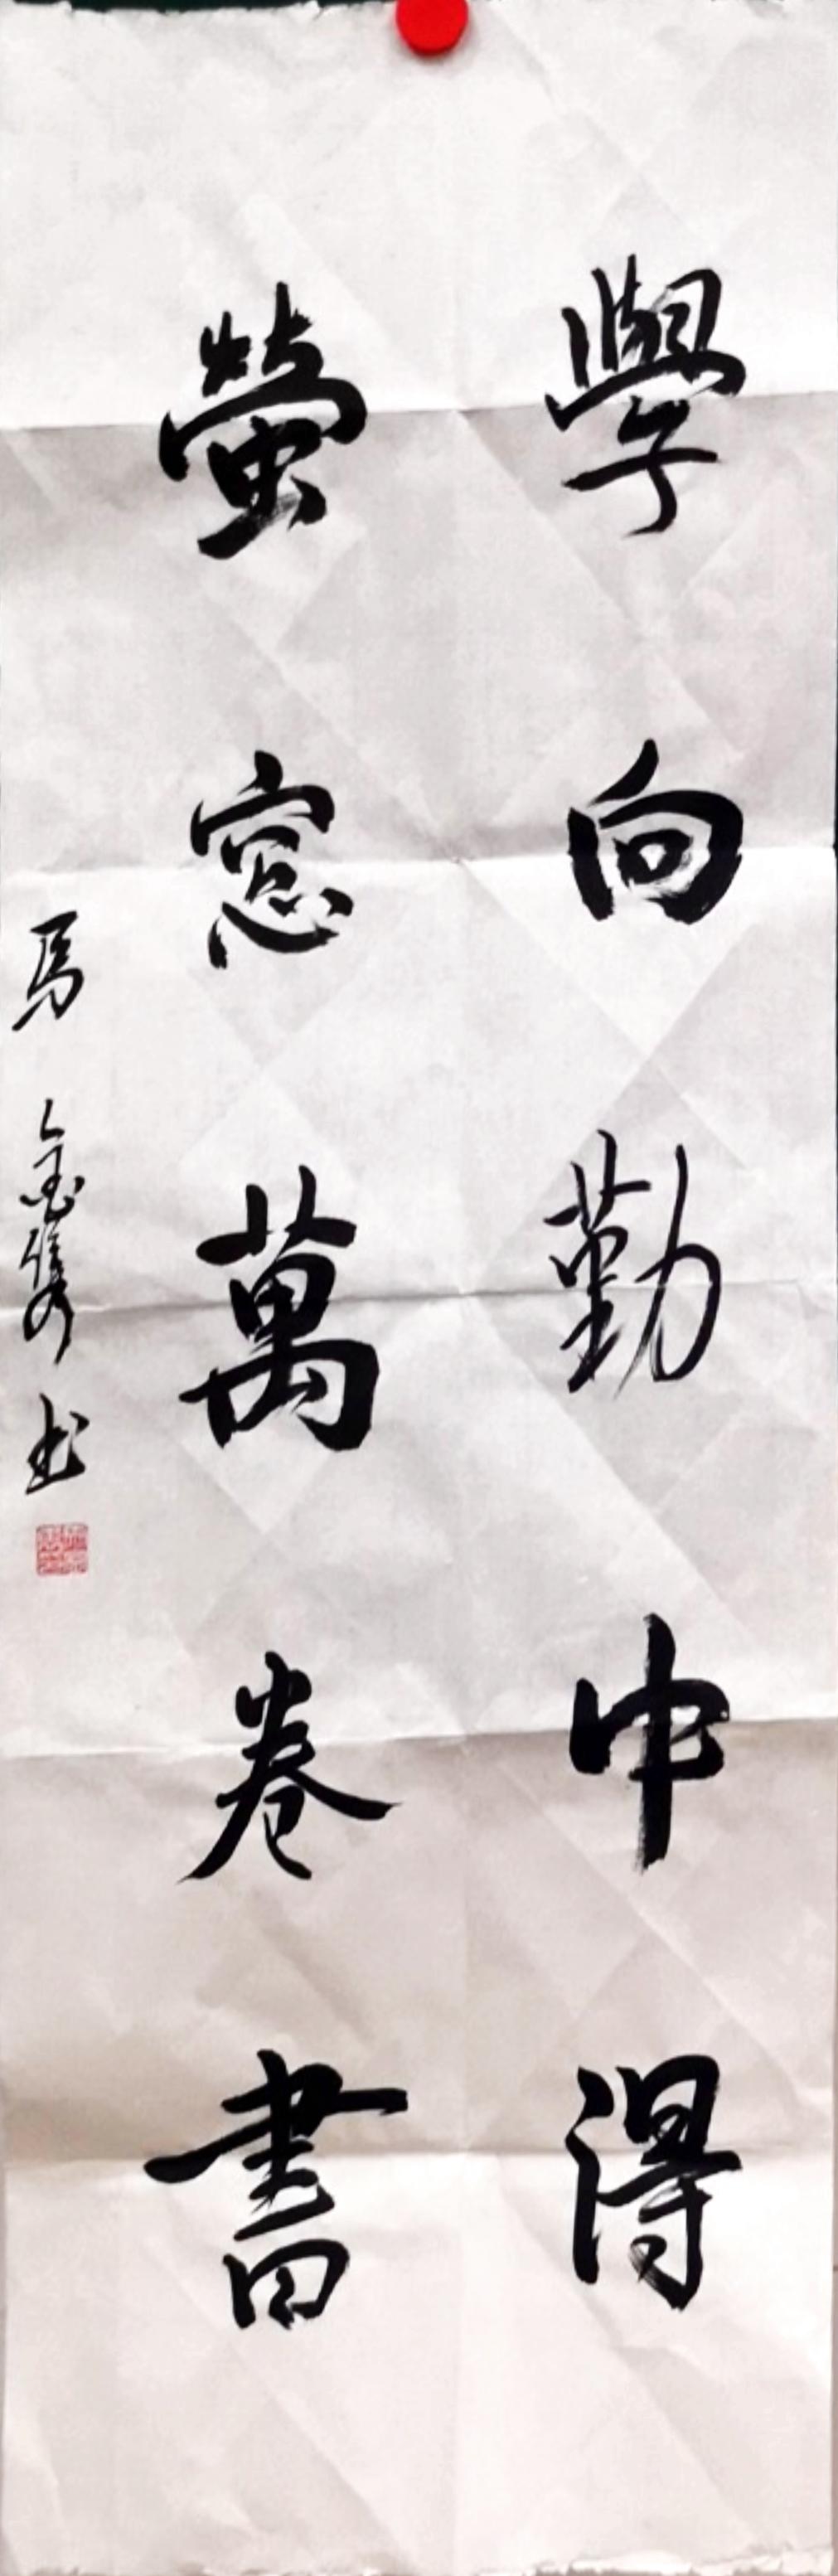 學向勤中得
螢窓萬卷書
馬金隽书